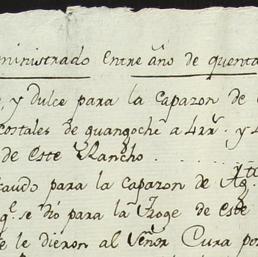 ministrado Entre año de quenta
y Dulce para la Capazon de
costales de guangoche a 4 rr.s y 4
de este Rancho.
para la Capazon de Ag.tto
q.e se dió para la Troge de este
le dieron al Señor Cura por